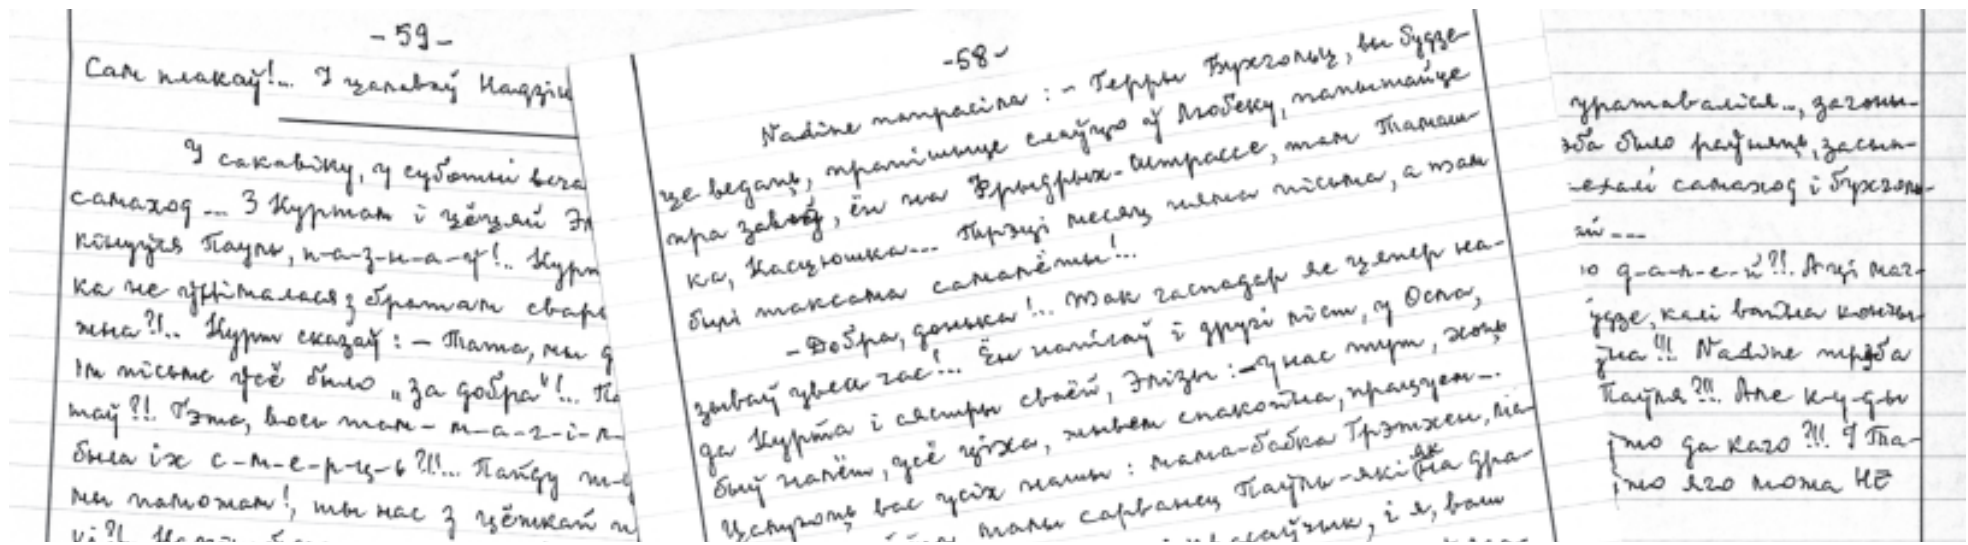 - 59 -
Сам плакаў!... І цалаваў Надзін
У сакавіку, у суботні веча
самаход... З Куртам і цёцяй Эл
кінуўся Пауль, п-а-з-н-а-ў!.. Курт
ка не ўнімалася з братам свары
жна?!.. Курт сказаў: - Тата, мы д
ім пісьме ўсё было „за добра"!.. Па
таў?!. Гэта, вось там - м-а-г-і-л-
была іх с-м-е-р-ц-ь?!!... Пайду
мы паможам!, ты нас з цёткай
- 58 -
Nadine папрасіла: - Герры Бухгольц, вы будзе-
це ведаць, прапішыце слаўцо аў Любеку, папытайце
пра завод, ён на Фрыдрых-штрассе, там Тамаш-
ка, Касцюшка... Трэці месяц няма пісьма, а там
былі таксама самалёты!...
- Добра, донька!.. Так гаспадар яе цяпер на-
зываў увесь час!... Ён напісаў і другі ліст, у Осла,
да Курта і сястры сваёй, Элізы: - У нас тут, хоць
быў налёт, усё ціха, жывем спакойна, працуем...
Цалуюць вас усіх нашы: мама-бабка Грэтхен,
малы сарванец Пауль - які як на дра-
і я, ваш
уратаваліся.., загоны-
эба было раўняць, засып-
ехалі самаход і Бухголь-
ай...
ю д-а-л-е-й?!!. Ацi маг-
ўдзе, калі вайна кончы-
ўна!!! Nadine трэба
Паўля?!!. Але ку-ды
што да каго?!!. У Та-
што яго можа НЕ